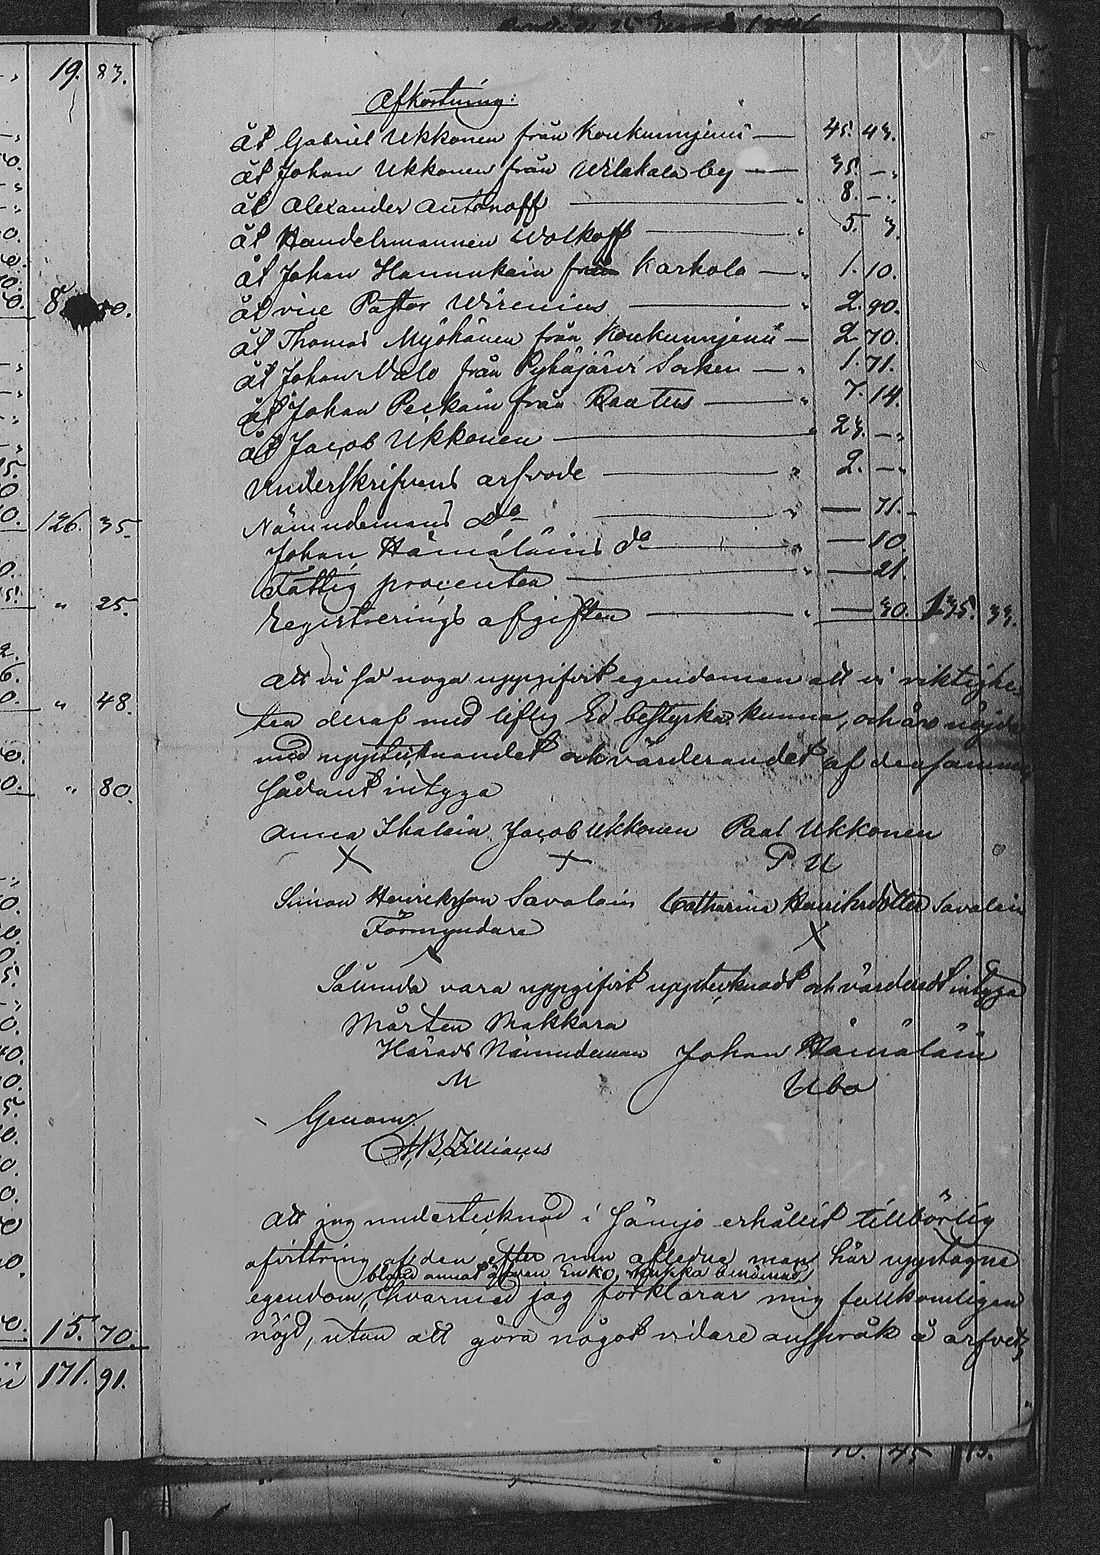 19. 83.
8 0.
126. 35.
" 25.
" 48.
" 80.
15. 70.
171. 91.
Afkortning:
åt Gabriel Ukkonen från Konkunnjemi — 45. 43.
åt Johan Ukkonen från Wilakala by — 35. —
åt Alexander Antonoff — " 8. —
åt Handelsmannen Wolkoff — " 5. 3.
åt Johan Hannukain från Karkola — " 1. 10.
åt vice Pastor Wirenius — " 2. 90.
åt Thomas Myöhänen från Konkunnjemi — 2 70.
åt Johan Valo från Pyhäjärvi Socken — " 1. 71.
åt Johan Peckain från Rautus — " 7. 14.
åt Jacob Ukkonen — " 23. —
Underskrifvens arfvode — " 2. —
Nämndemans Do — " — 71.
Johan Hämäläins do — " — 10.
Fattig procenten — " — 21.
Registrerings afgiften — " — 30. 135. 33.
Att vi så noga uppgifvit egendomen att vi riktighe
ten deraf med liflig Ed bestyrka kunna, och äro nöjda
med upptecknandet och värderandet af densamma
sådant intyga
Anna Ihalain Jacob Ukkonen Paal Ukkonen
X X P. U
Simon Henriksson Savolain Catharina Henriksdotter Savolain
Förmyndare X
X
Sålunda vara uppgifvit upptecknadt och värderadt intyga
Mårten Makkara
Härads Nämndeman Johan Hämäläin
M Ubo
Genom:
Att jag undertecknad i Sämjo erhållit tillbörlig
afvittring af den efter min afledne man här upptagne
bland annat äfven Enko,
egendom, hvarmed jag förklarar mig fullkomligen
nöjd, utan att göra något vidare anspråk å arfvet
10. 45 15.